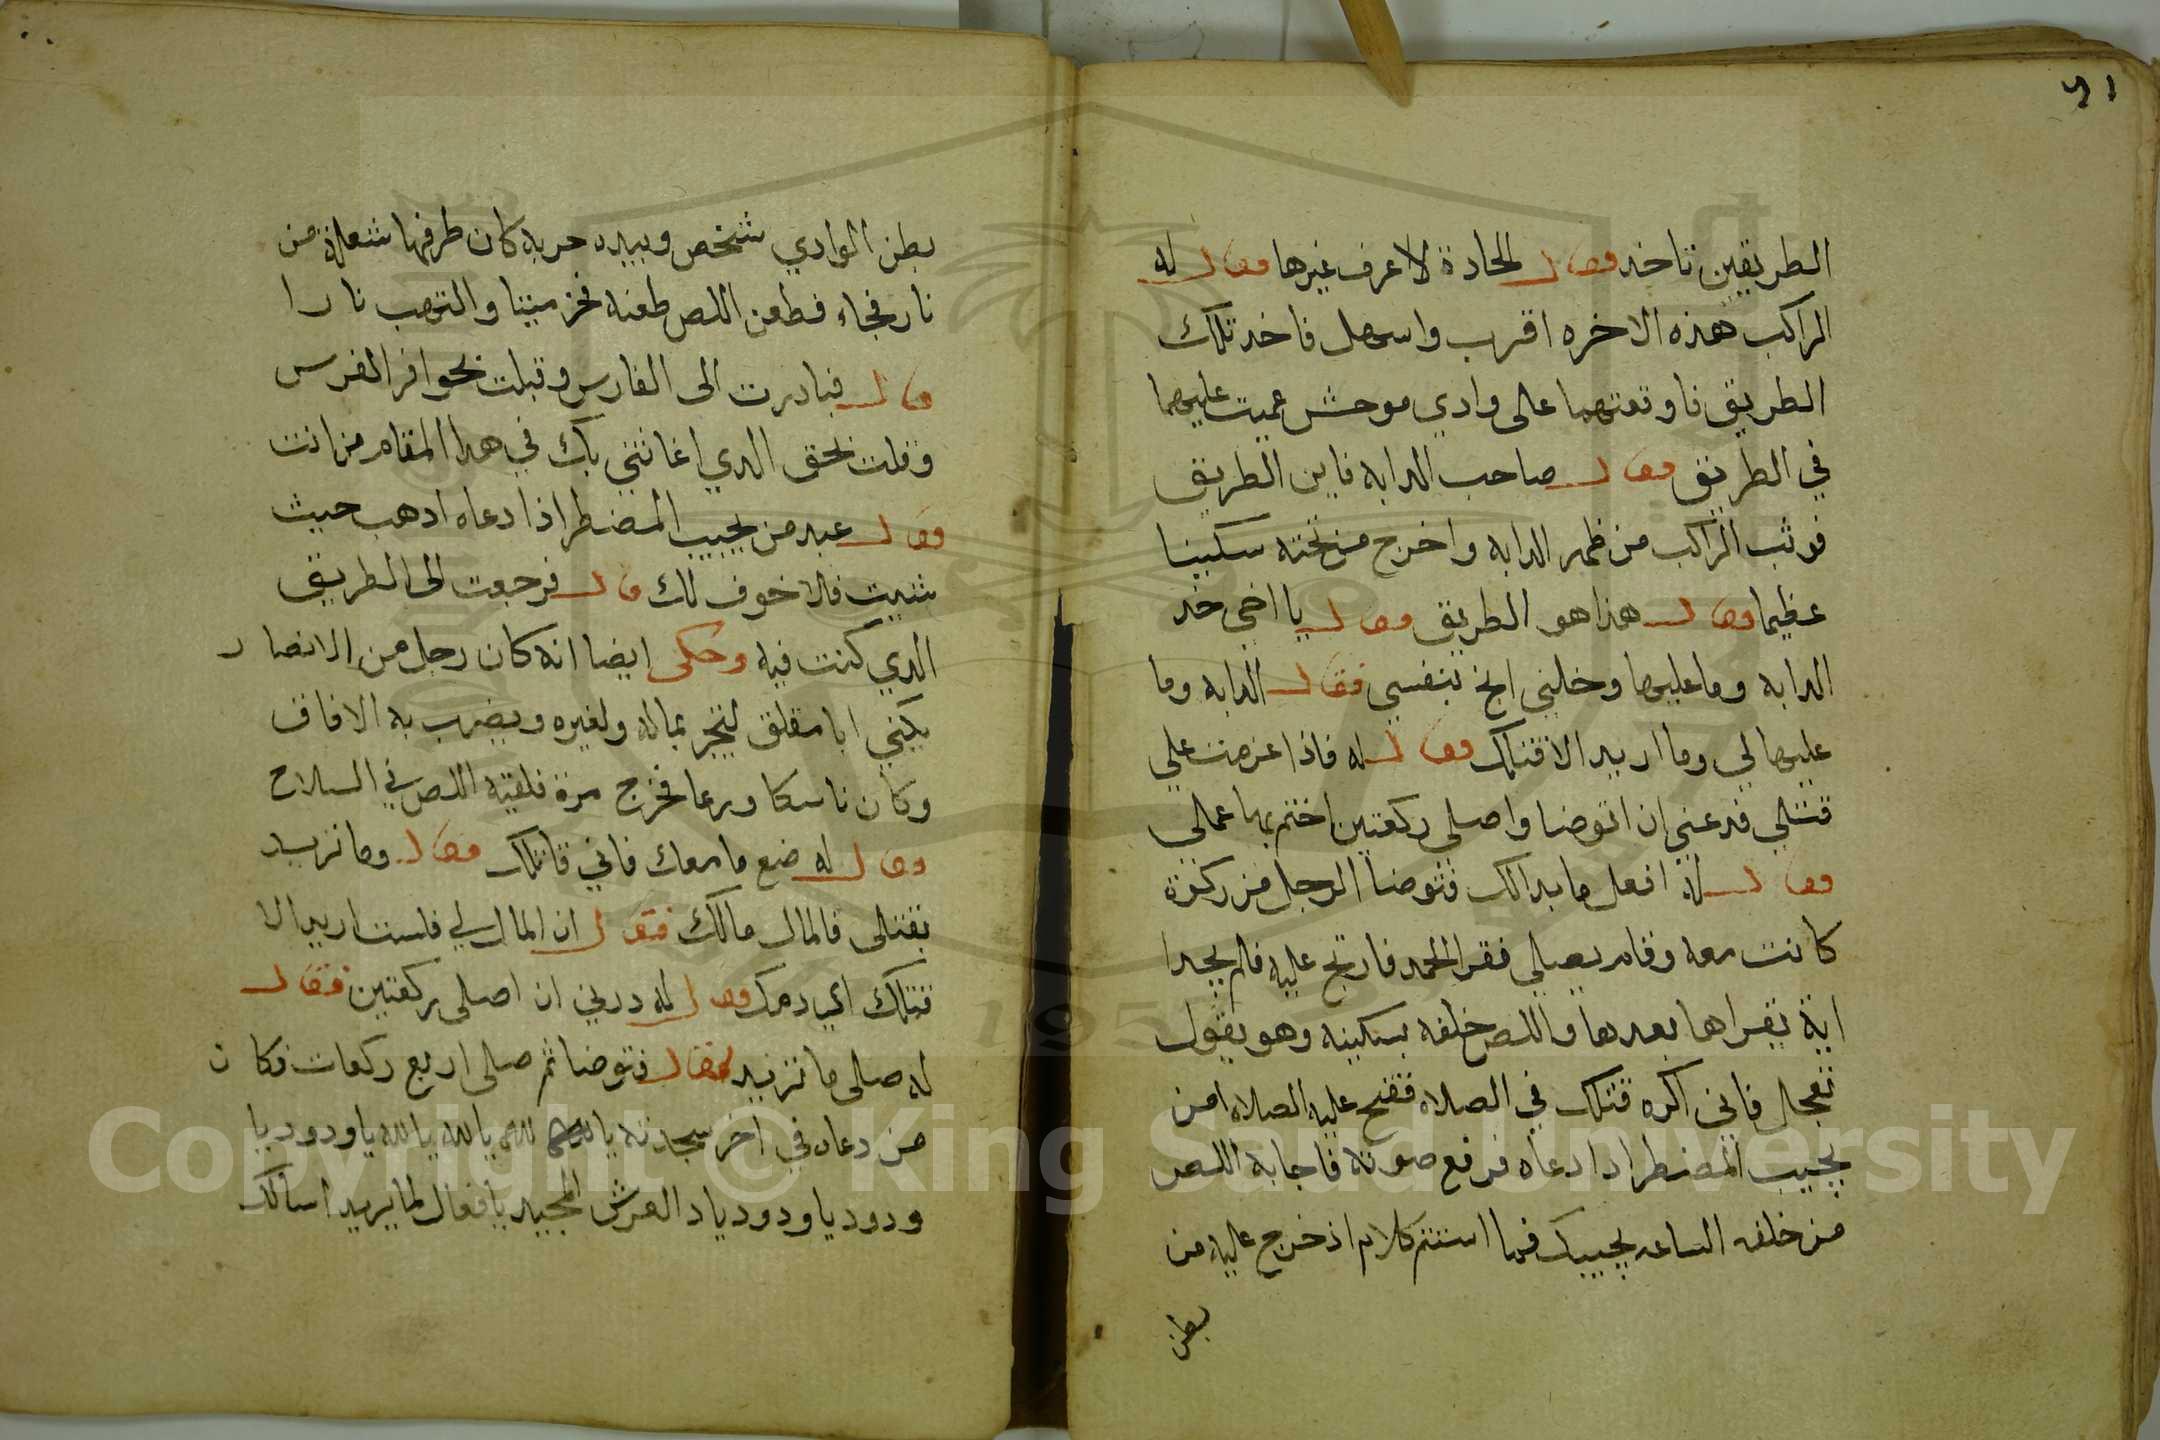 ٥١
الطريقين تاخد فقال الجادة لاعرف غيرها فقال له
الراكب هذه الاخره اقرب واسهل فاخد تلك
الطريق فاوقعتهما على وادي موحش عميت عليهما
في الطريق فقال صاحب الدابه فاين الطريق
فوثب الراكب من ظهر الدابه واخرج من تحته سكينا
عظيما وقال هذا هو الطريق فقال يا اخي خد
الدابه وما عليها وخليني انج بنفسي فقال الدابه وما
عليها لي وما اريد الا قتلك فقال له فاذا عزمت علي
قتلي فدعني ان اتوضا واصلي ركعتين اختم بها عملي
فقال له افعل ما بدالك فتوضا الرجل من ركوة
كانت معه وقام يصلي فقرا الحمد فارتج عليه فلم يجدا
اية يقراها بعدها واللص خلفه بسكينه وهو يقول
تعجل فاني اكره قتلك في الصلاه ففتح عليه الصلاه امن
يجيب المضطر ادا دعاه فرفع صوته فاجابه اللص
من خلفه الساعه يجيبك فما استتم كلام اذ خرج عليه من
بطن
بطن الوادي شخص وبيده حربه كان طرفها شعلة من
نار فجاء فطعن اللص طعنه فخر ميتا والتهب نارا
قال فبادرت الى الفارس وقبلت نحو افر الفرس
وقلت بحق الدي اغاثني بك في هدا المقام من انت
فقال عبد من يجيب المضطر اذا دعاه ادهب حيث
شيت فلا خوف لك قال فرجعت الى الطريق
الدي كنت فيه وحكى ايضا انه كان رجل من الانصار
يكني ابا مقلق يتجر بماله ولغيره ويضرب به الافاق
وكان ناسكا ورعا فخرج مرة فلقيه اللص في السلاح
فقال له ضع ما معك فاني قاتلك فقال وما تريد
بقتلى فالمال مالك فقال ان المال لي فلست اريد الا
قتلك اي دمك فقال له درني ان اصلى ركعتين فقال
له صلى ما تريد فقال فتوضا ثم صلى اربع ركعات فكان
من دعاه في اخر سجدته يا الله يا الله يا الله يا ودود يا
ودود يا ودود ياد العرش المجيد يا فعال لما يريد اسالك
Copyright © King Saud University
1957